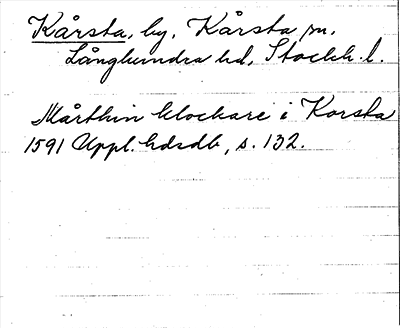 Kårsta, by, Kårsta sn.
Långhundra hd, Stockh. l.
Mårthin klockare i Korsta
1591 Uppl. hdsdb, s. 132.